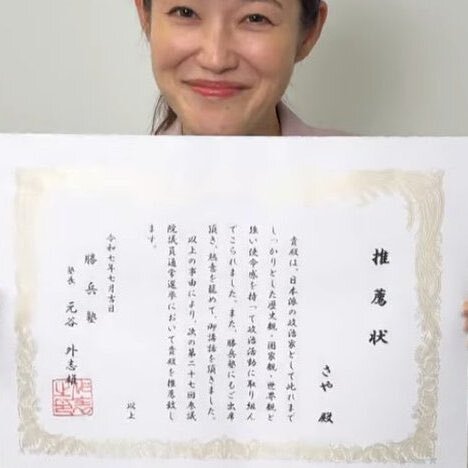 推薦状
さや 殿
貴殿は、日本派の政治家として此れまで
しっかりとした歴史観・国家観・世界観と
強い使命感を持って政治活動に取り組ん
でこられました。また、勝兵塾にもご出席
頂き、極意を籠めて、御講話を頂きました。
以上の事由により、次の第二十七回参議
院議員通常選挙において貴殿を推薦致し
ます。
以上
令和七年七月吉日
勝兵塾
塾長 元谷 外志雄